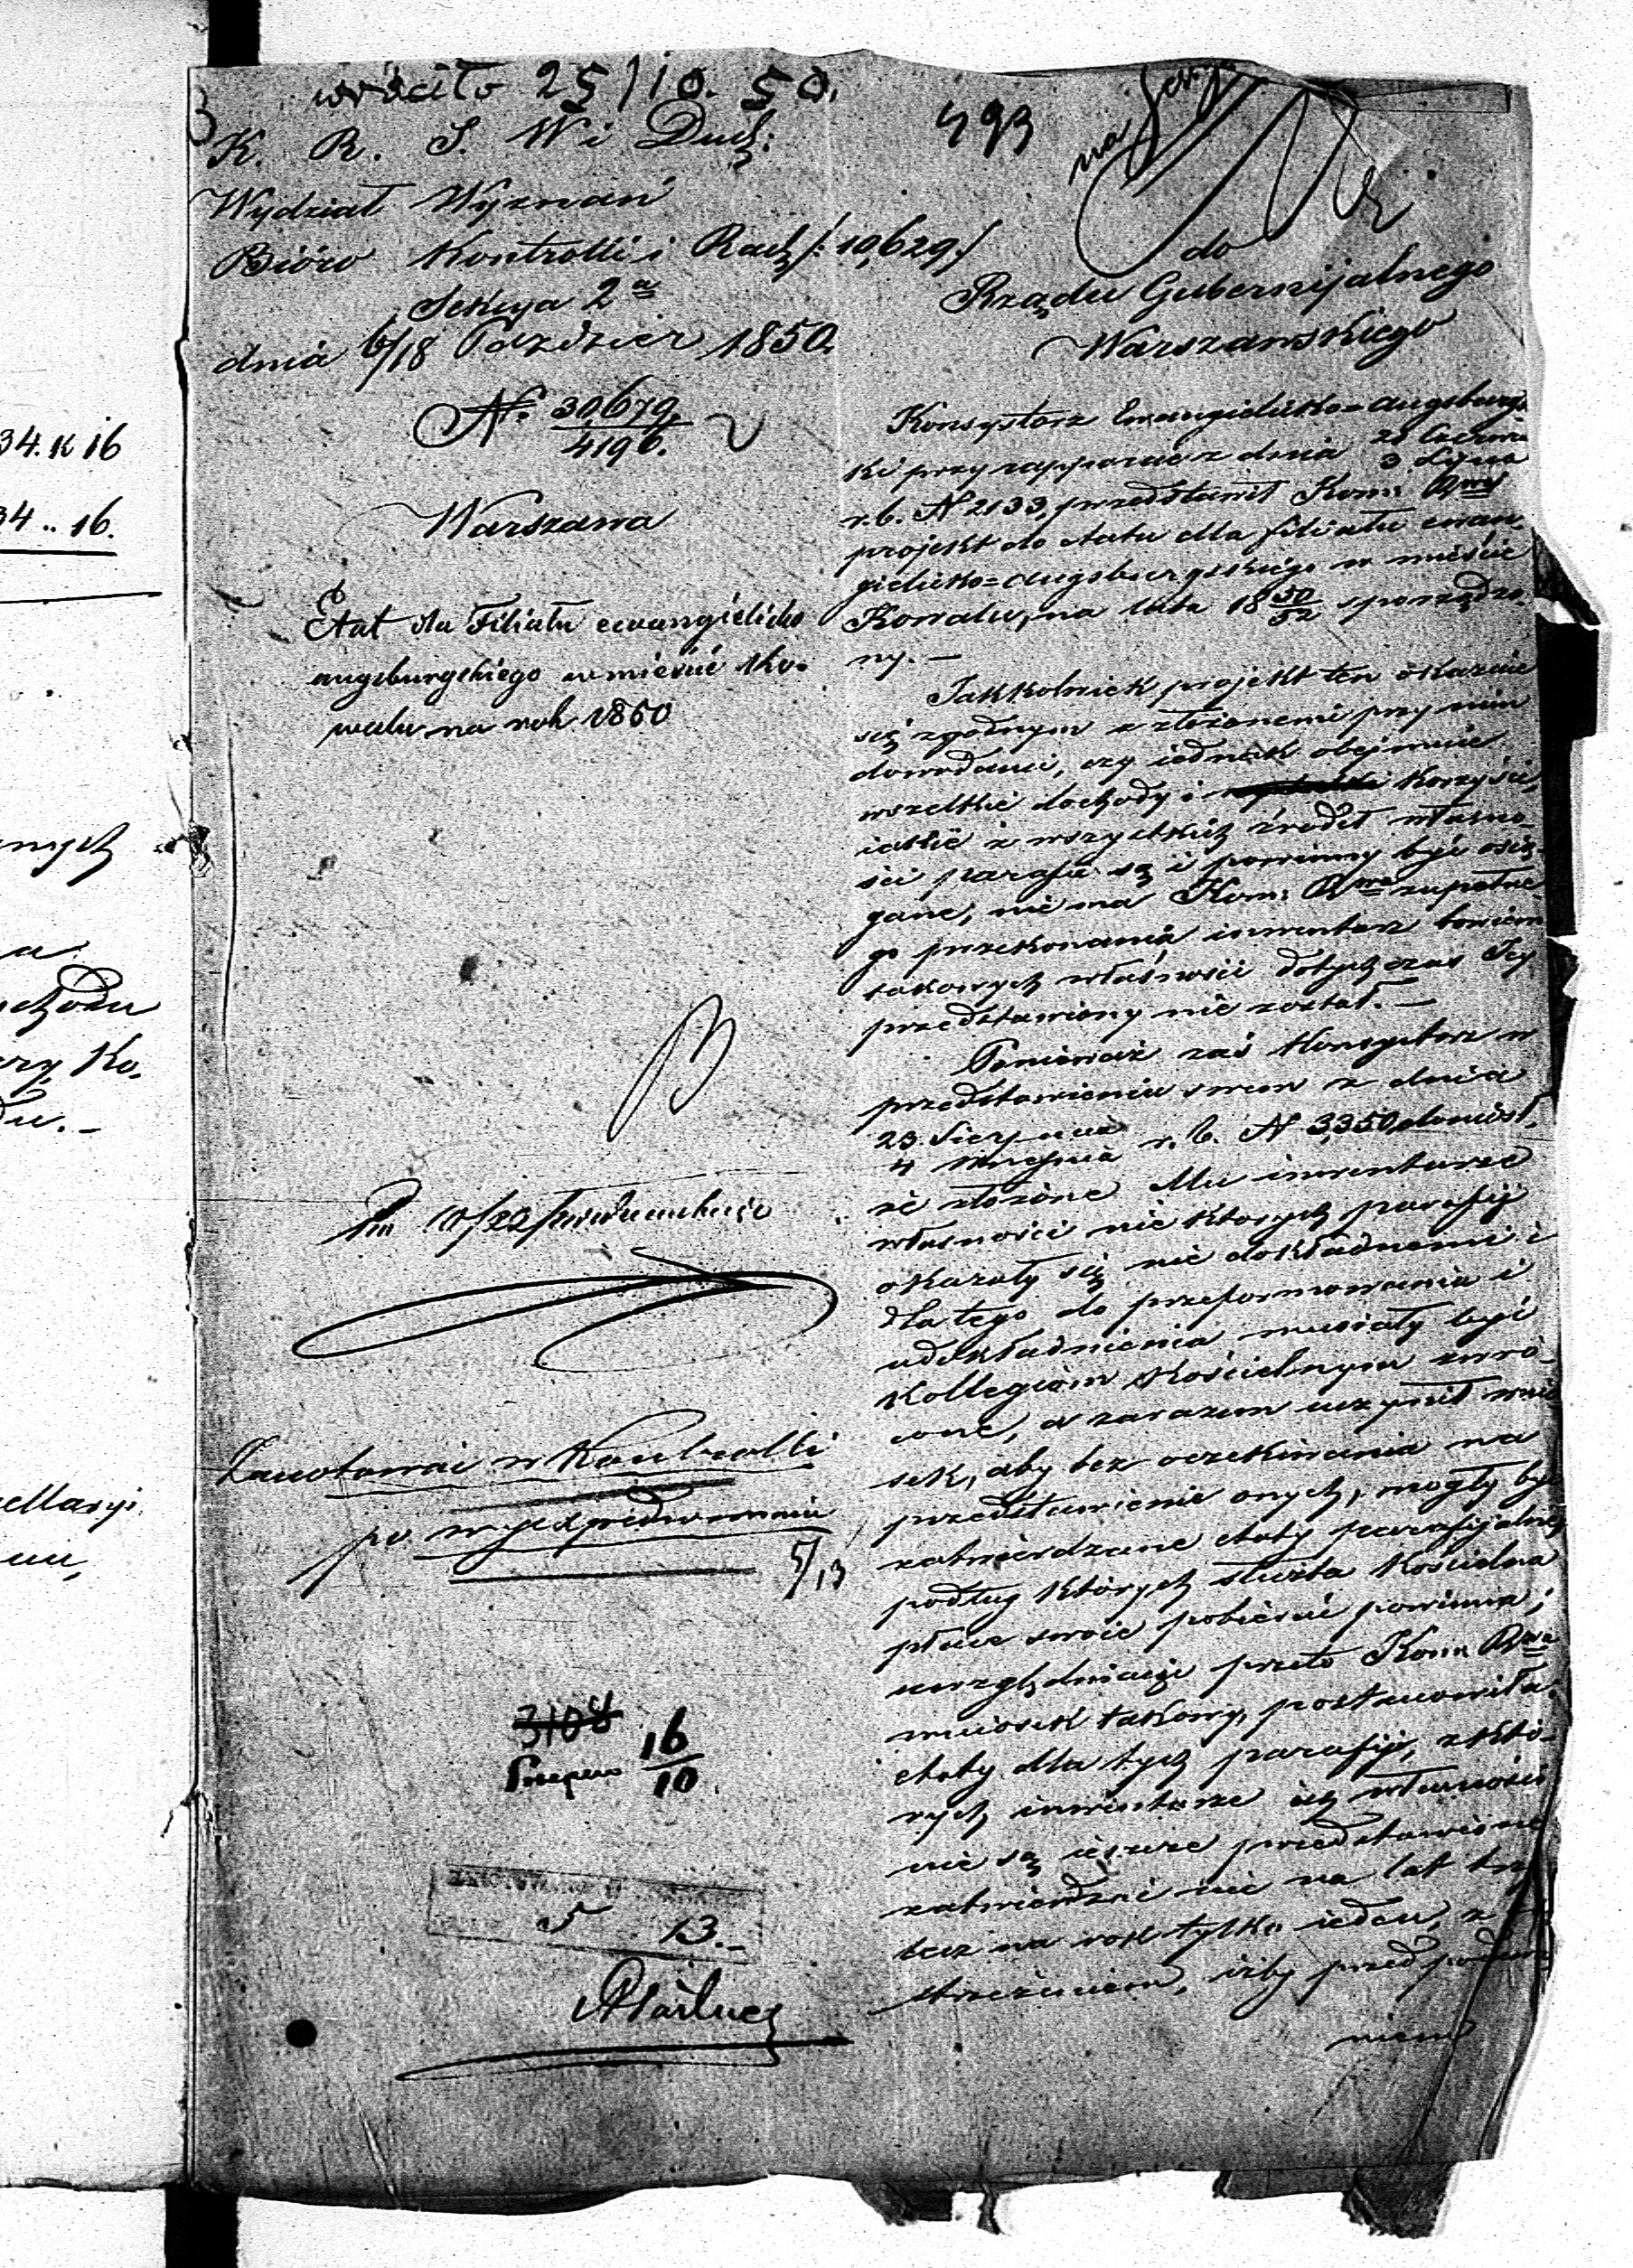 wróciło 25/10. 50.
493
K. R. S. W i Duch:
Wydział Wyznań
Bióro Kontrolli i Rach/: 10,629/
Sekcya 2a
dnia 6/18 Paździer 1850.
N. 30,679.
4196.
Warszawa
Etat dla Filiału ewangielicko
augsburgskiego w mieście Ko-
walu na rok 1850
10/22
Zanotować w Kontrolli
po wyexpedowaniu
5/13
3108
16
10
5 13.-
na Sessyi
do
Rządu Gubernijalnego
Warszawskiego
Konsystorz Ewangielicko=augsburgs-
ki przy rapporcie z dnia 21 Czerwca
3 Lipca
r. b. N 2133, przedstawił Kom: Rwej
projekt do etatu dla filiału ewan-
gielicko=augsburgskiego w mieście
Kowalu, na lata 18 50/52 sporządzo-
ny. —
Jakkolwiek projekt ten okazuie
się zgodnym z złożonemi przy nim
dowodami, czy iednak obejmuie
wszelkie dochody i korzyści,
iakie z wszystkich źródeł własno-
ści parafii są i powinny być osią-
gane, nie ma Kom: Rwa zupełne-
go przekonania, inwentarz bowiem
takowych własności dotychczas Jey
przedstawiony nie został. —
Ponieważ zaś Konsystorz w
przedstawieniu swem z dnia
23 Sierpnia
4 Września r. b. N 3,350, doniósł,
że złożone Mu inwentarze
własności niektórych parafij
okazały się nie dokładnemi i
dla tego do przeformowania i
udokładnienia musiały być
Kollegiom Kościelnym zwró-
cone, a zarazem uczynił wnio-
sek, aby bez oczekiwania na
przedstawienie onych, mogły być
zatwierdzane etaty parafijalne,
podług których służba Kościelna
płace swoie pobierać powinna;
uwzględniaiąc przeto Kom: Rwa
wniosek takowy, postanowiła:
etaty dla tych parafij, z któ-
rych inwentarze ich własności
nie są ieszcze przedstawione
zatwierdzać nie na lat trzy
lecz na rok tylko ieden, z
strzeżeniem, iżby przed
niem